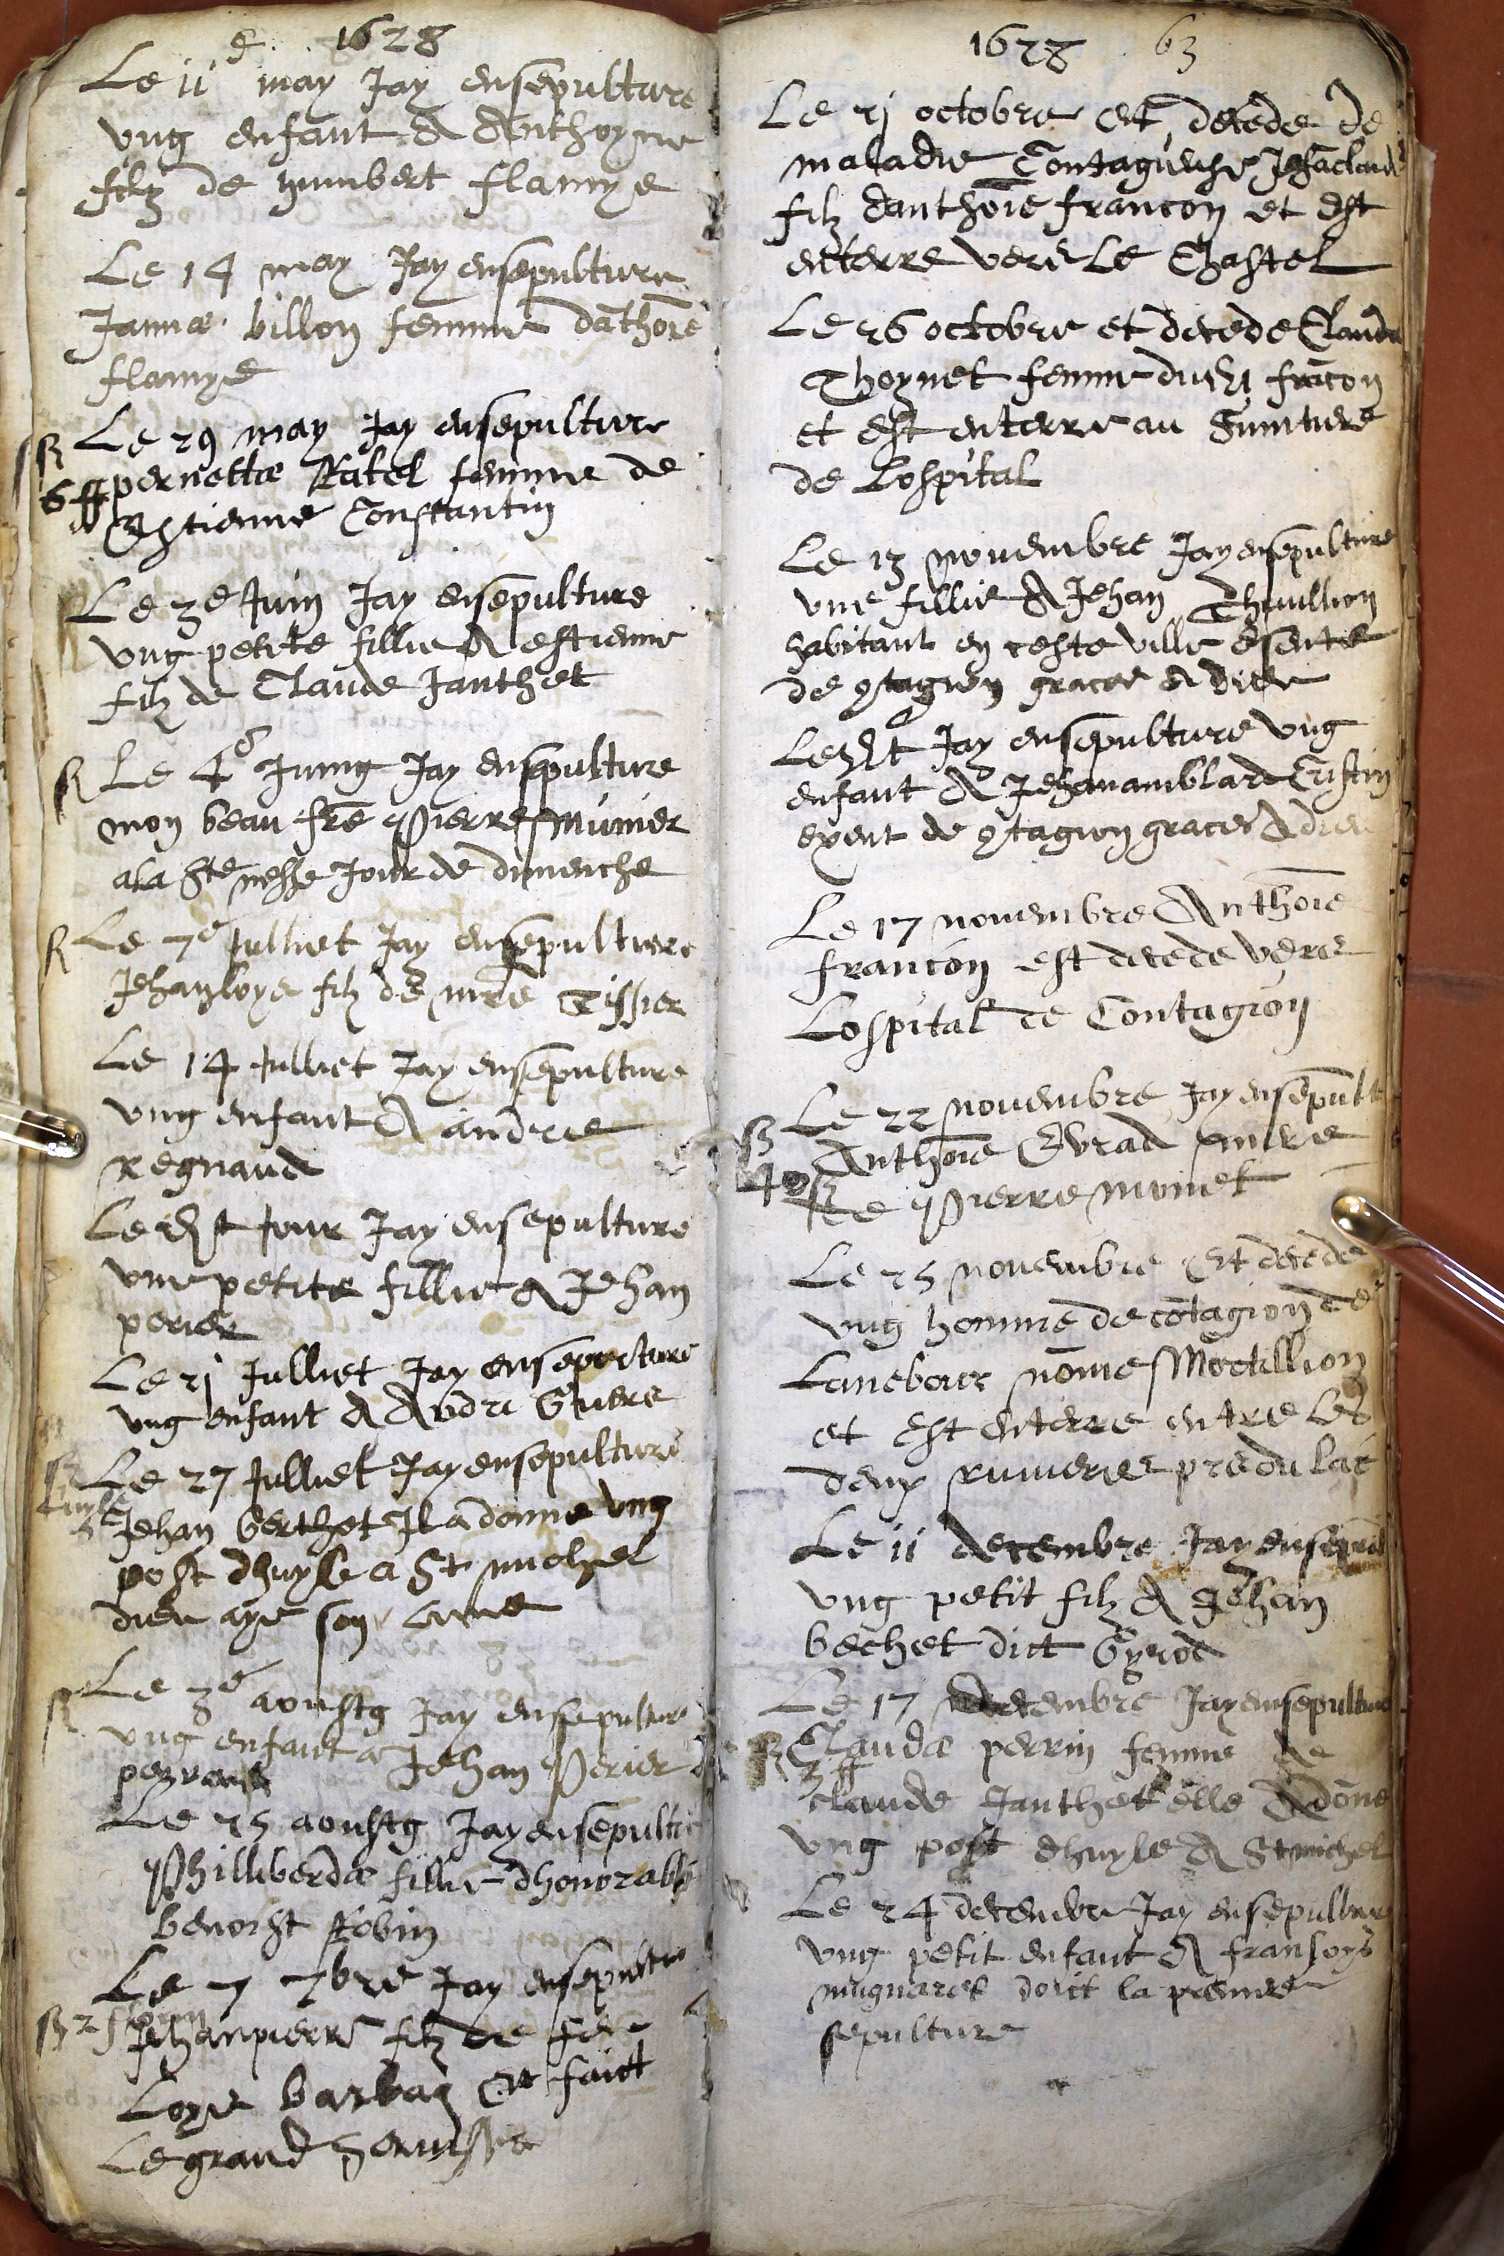 1628
Le 11e may Jay ensepulture
ung enfant A Anthoyne
filz de humbert flamye
Le 14 may Jay ensepulture
Janna billon femme danthoie
flamye
Le 29 may Jay ensepulture
pernetta Ratel femme de
Estienne Constantin
Le 3e Juin Jay ensepulture
ung petite fillie A estienne
filz de Claude Janthet
Le 4e Juing Jay ensepulture
mon beau fre Pierre Munier
a la Ste messe Jour de dimenche
Le 7e Julliet Jay ensepulture
Jehan loye filz de mre Tissier
Le 14 Julliet Jay ensepulture
ung enfant A andree
Regnaud
Le dit Jour Jay ensepulture
une petite fillie A Jehan
perier
Le 21 Julliet Jay ensepulture
ung enfant A Andre
Le 27 Julliet Jay ensepulture
Jehan berthet Il a donne ung
post dhuylle a St michel
dieu aye son ame
Le 3e aoustg Jay ensepulture
ung enfant a Jehan Perier
Le 25 aoustg Jay ensepultu
Philliberda fillie dhonorable
benoist Robin
Le 7 7bre Jay ensepultu
Jehan pierre filz de feu
Loye barbaz Et faict
Le grand
1628 63
Le 21 octobre Est decede de
maladie Contagieuse Jehaclaud
filz danthoie francon et est
enterre vers Le Chastel
Le 26 octobre et decede Clauda
Thoynet femme dudit francon
et est enterre au Simitiere
de Lospital
Le 13 novembre Jay ensepulture
une fillie A Jehan
habitant en ceste ville esente
de 9tagion grace A dieu
Le dit Jay ensepulture ung
enfant A Jehan amblard Cristin
exent de 9tagion graces A dieu
Le 17 novembre Anthoie
francon est decede vers
Lospital de Contagion
Le 22 novembre Jay ensepult
Anthoie Evrad mere
de Pierre monet
Le 25 novembre Est decede
ung homme de cotagion de
nome Mortillion
et est enterre entre les
deux rivieres pre du lac
Le 11 decembre Jay ensepult
ung petit filz A Jehan
bechet dict Gyrod
Le 17 decembre Jay ensepulture
Clauda perrin femme de
claude Janthet elle A done
ung post dhuyle A St michel
Le 24 decembre Jay ensepulture
ung petit enfant A fransoys
mugnaret doict la
sepulture